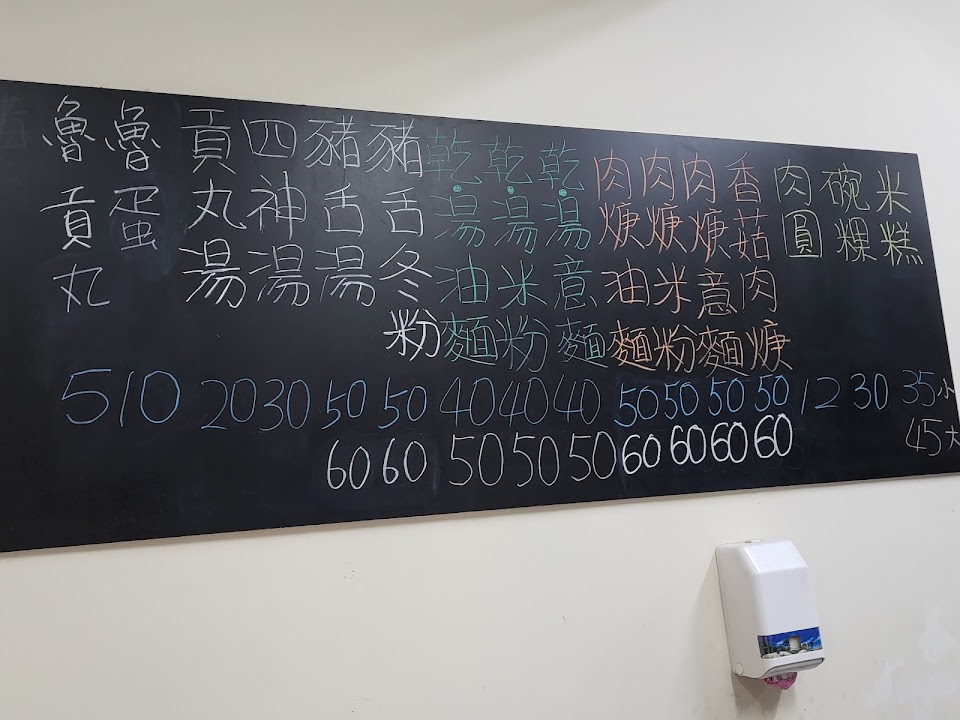 米糕 35小 45大
碗粿 30
肉圓 12
香菇肉焿 50 60
肉焿意麵 50 60
肉焿米粉 50 60
肉焿油麵 50 60
乾·湯意麵 40 50
乾·湯米粉 40 50
乾·湯油麵 40 50
豬舌冬粉 50 60
豬舌湯 50 60
四神湯 30
貢丸湯 20
魯蛋 10
魯貢丸 5